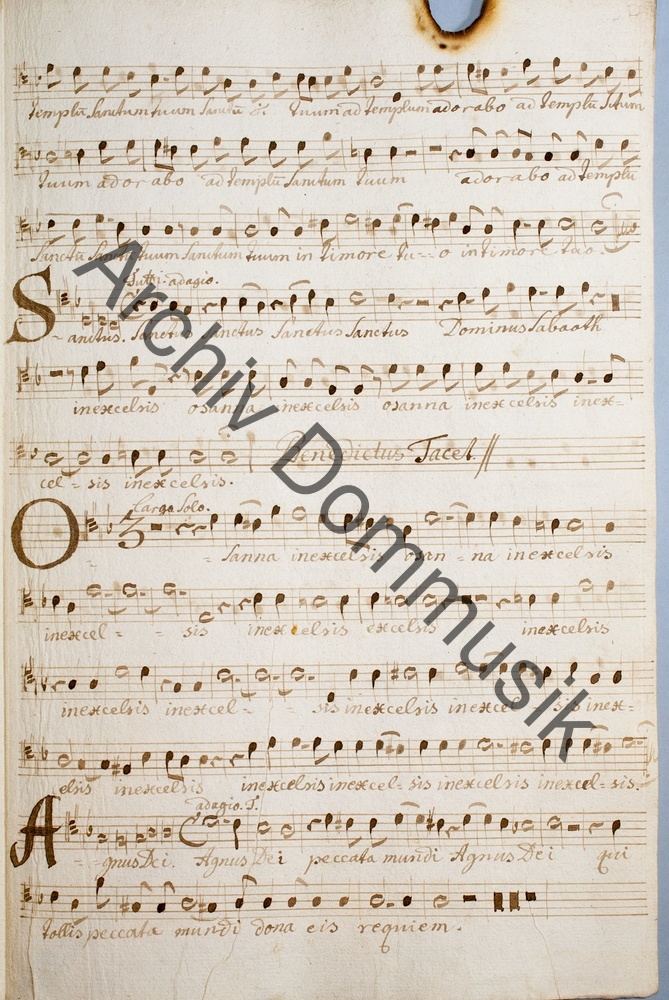 templũ Sanctum tuum Sanctũ tuum ad templum adorabo ad templũ
tuum adorabo ad templũ Sanctum tuum adorabo ad templũ
Sanctũ tuum Sanctum tuum in timore tu--o in timore tuo.
Tutti. adagio.
S-anctus. Sanctus Sanctus Sanctus Sanctus Dominus Sabaoth
in excelsis osanna in excelsis osanna in excelsis in ex=
cel-sis in excelsis. Benedictus Tacet.
Largo Solo.
O--Sanna in excelsis osan-na in excelsis
in excel--sis in excelsis excelsis in excelsis
in excelsis in excel--sis in excelsis in excel sis in ex=
elsis in excelsis in excelsis in excel-sis in excelsis in excel-sis.
adagio. T.
A--gnus Dei. Agnus Dei peccata mundi Agnus Dei qui
tollis peccata mundi dona eis requiem.
Archiv Dommusik